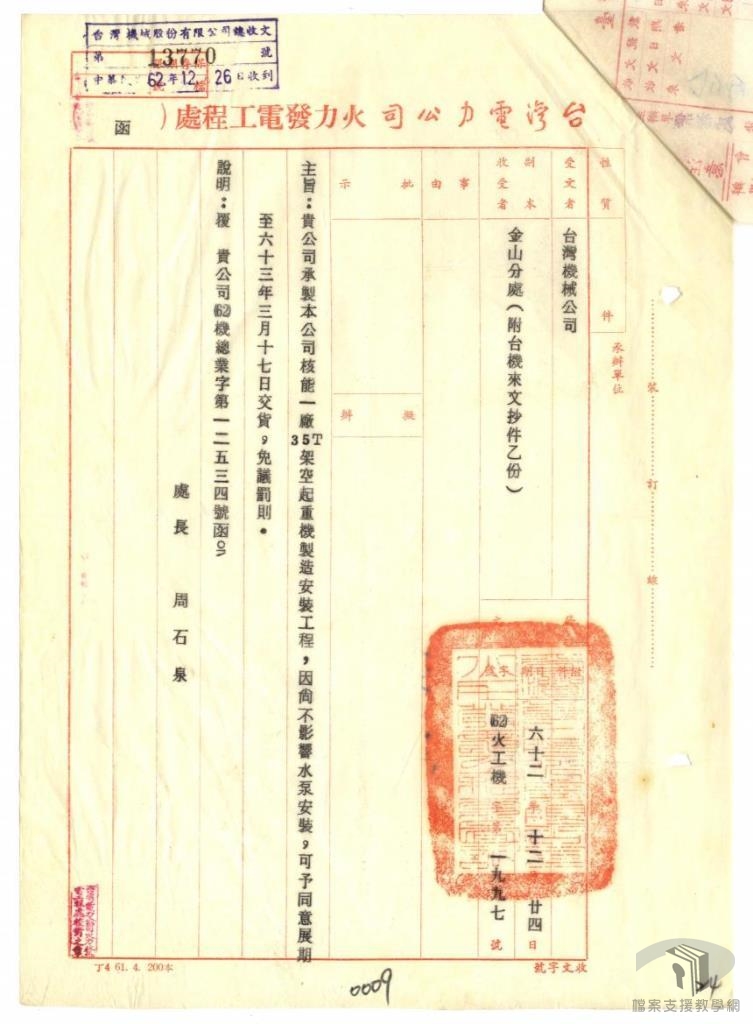 台灣機械股份有限公司總收文
第 13770 號
中華民 62年12 26日收到
台灣電力公司火力發電工程處(函)
性質
件
承辦單位
受文者
台灣機械公司
副本
收受者
金山分處(附台機來文抄件乙份)
事由
批示
擬辦
附件
日期
六十二年十二 廿四日
字號
(62)火工機字第一九九七號
主旨:貴公司承製本公司核能一廠35T架空起重機製造安裝工程,因尚不影響水泵安裝,可予同意展期
至六十三年三月十七日交貨,免議罰則。
說明:復 貴公司(62)機總業字第一二五三四號函。
處長 周石泉
裝
訂
線
收文字號
丁4 61. 4. 200本
0009
24
檔案支援教學網